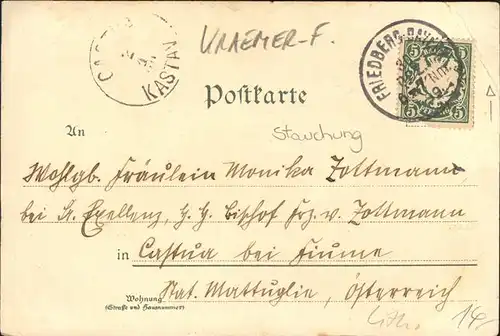 KASTAN
VRAEMER-F.
FRIEDBERG
5 5
5 5
Postkarte
Stauchung
An
Wohlgb. Fräulein Monika Zottmann
bei Sr. Exellenz, H. H. Bischof Frz. v. Zottmann
in Castua bei Fiume
Wohnung
(Straße und Hausnummer)
Stat. Mattuglie, Österreich
14